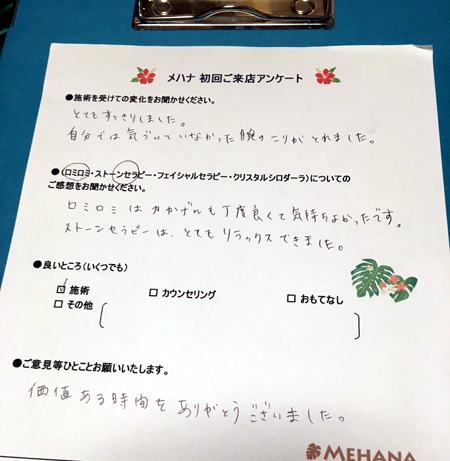 メハナ 初回ご来店アンケート
●施術を受けての変化をお聞かせください。
とてもすっきりしました。
自分では気づいていなかった腕のこりがとれました。
●(ロミロミ・ストーンセラピー・フェイシャルセラピー・クリスタルシロダーラ)についての
ご感想をお聞かせください。
ロミロミは力かげんも丁度良くて気持ちよかったです。
ストーンセラピーは、とてもリラックスできました。
●良いところ(いくつでも)
☑施術 □カウンセリング □おもてなし
□その他
●ご意見等ひとことお願いいたします。
価値ある時間をありがとうございました。
MEHANA